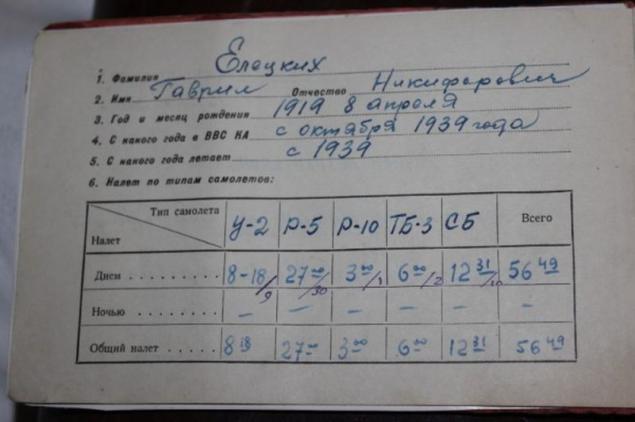 1. Фамилия Елецких
2. Имя Гаврил Отчество Никифорович
3. Год и месяц рождения 1919 8 апреля
4. С какого года в ВВС КА с октября 1939 года
5. С какого года летает с 1939
6. Налет по типам самолетов:
Тип самолета У-2 Р-5 Р-10 ТБ-3 СБ Всего
Налет
Днем . . . . . . . . . 8-18/9 27 00/30 3 00/1 6 00/2 12 31/10 56 49
Ночью . . . . . . . . — — — — — —
Общий налет . . . . . 8 18 27 00 3 00 6 00 12 31 56 49